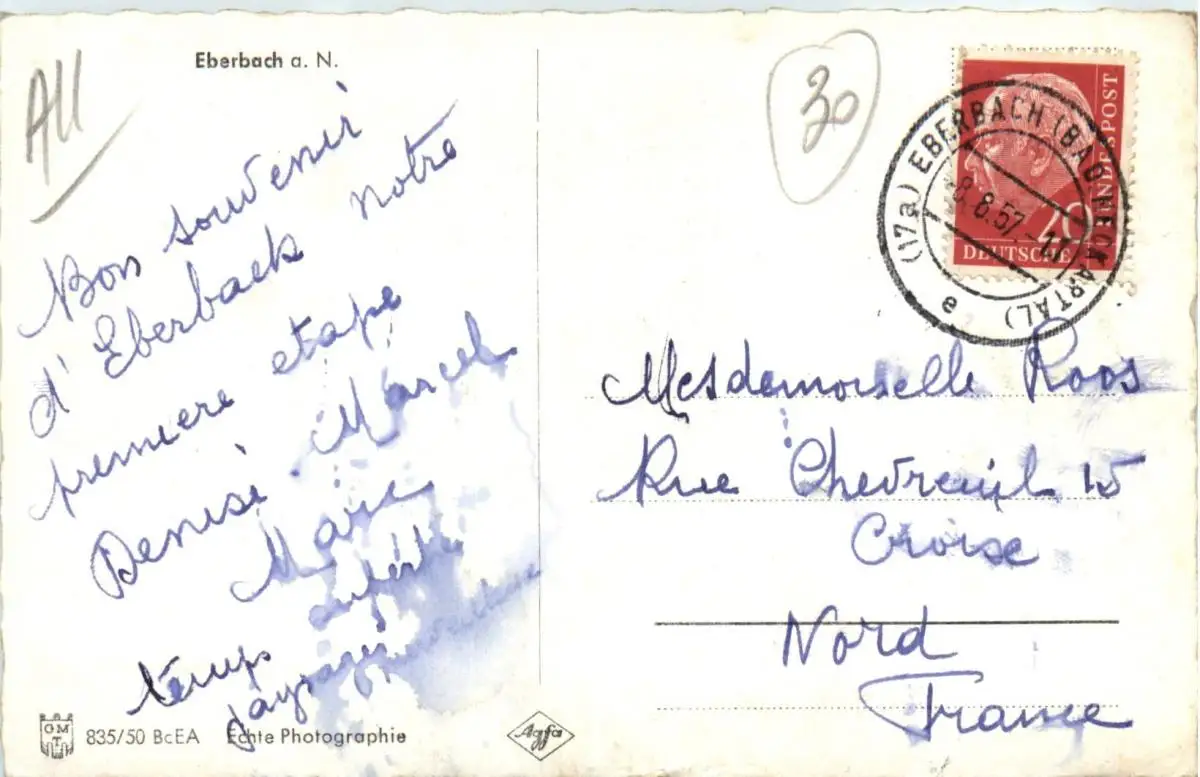 All
Eberbach a. N.
30
Bon souvenir
d'Eberback notre
premiere etape
Denise. Marcel
Marie
temps superbe
paysages
835/50 BcEA Echte Photographie
GM
T
Agfa
(17a) EBERBACH (BAD. NECKARTAL)
8.8.57.-17
e
20
DEUTSCHE BUNDESPOST
Mesdemoiselle Roos
Rue Chevreuil 15
Croise
Nord
France